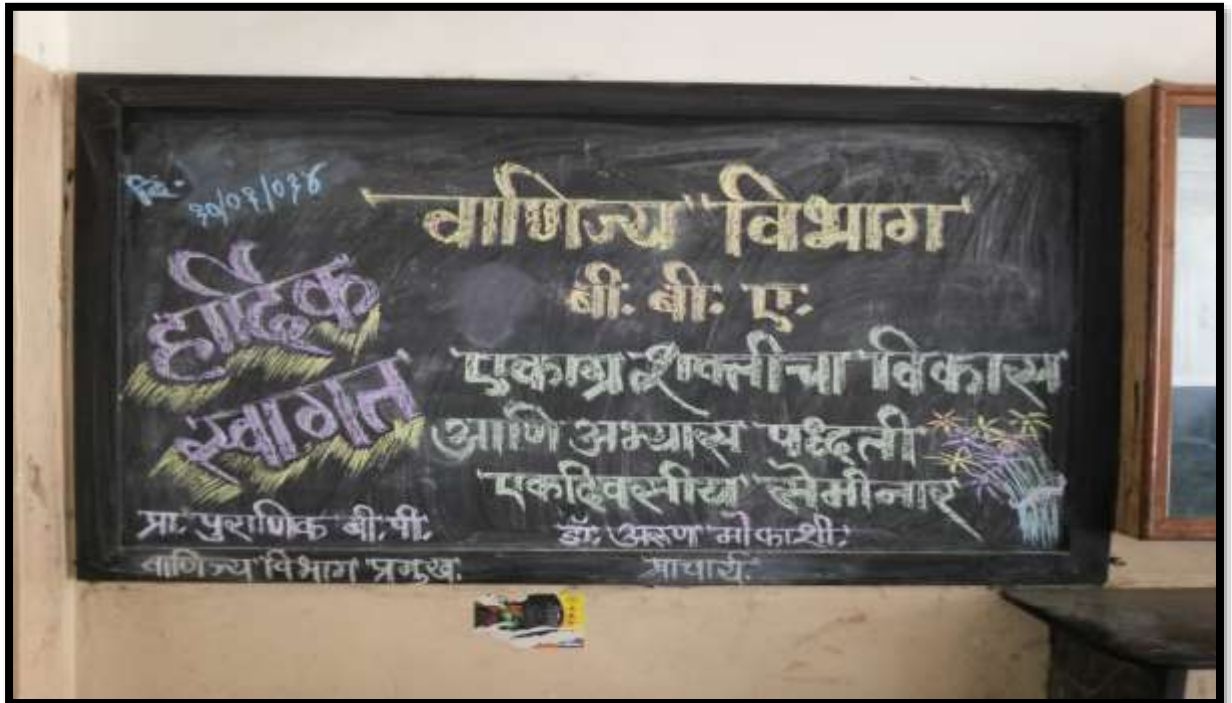 दि.
वाणिज्य विभाग
बी. बी. ए.
हार्दिक
स्वागत
एकाग्र शक्तीचा विकास
आणि अभ्यास पध्दती
एकदिवसीय सेमीनार
प्रा. पुराणिक बी. पी.
वाणिज्य विभाग प्रमुख.
डॉ. अरुण मोकाशी.
प्राचार्य.